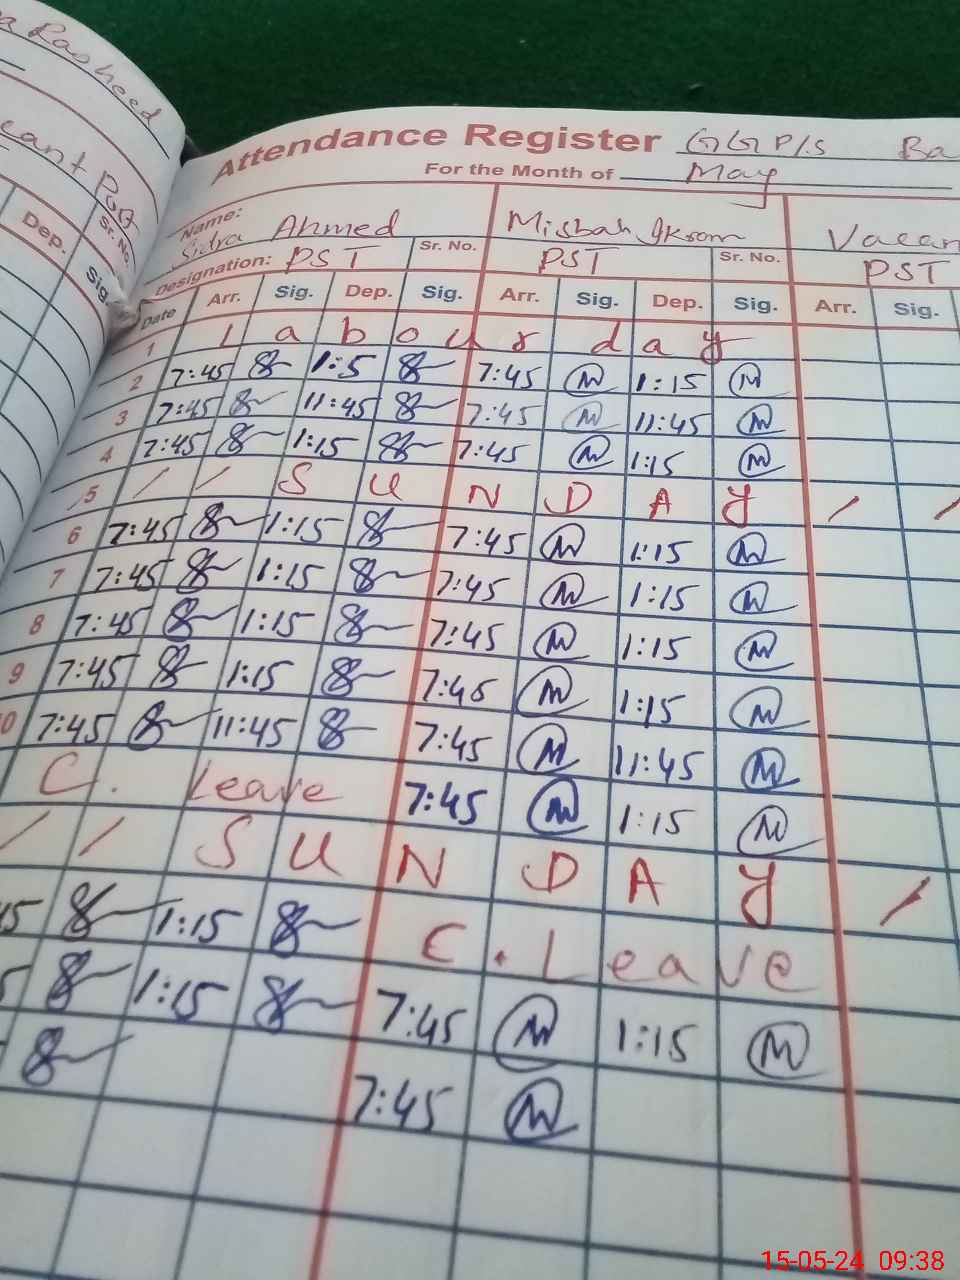 Rasheed
cant Post
Dep. Sr. No.
Sig.
Attendance Register GGP/S Ba
For the Month of May
Name: Sidra Ahmed Misbah Ikram Vacan
Designation: PST Sr. No. PST Sr. No. PST
Date Arr. Sig. Dep. Sig. Arr. Sig. Dep. Sig. Arr. Sig.
1 labour day
2 7:45 1:5 7:45 M 1:15 M
3 7:45 11:45 7:45 M 11:45 M
4 7:45 1:15 7:45 M 1:15 M
5 / / SUNDAY / /
6 7:45 1:15 7:45 M 1:15 M
7 7:45 1:15 7:45 M 1:15 M
8 7:45 1:15 7:45 M 1:15 M
9 7:45 1:15 7:46 M 1:15 M
10 7:45 11:45 7:45 M 11:45 M
C. Leave 7:45 M 1:15 M
/ / SUNDAY /
45 1:15 C. Leave
5 1:15 7:45 M 1:15 M
7:45 M
15-05-24 09:38